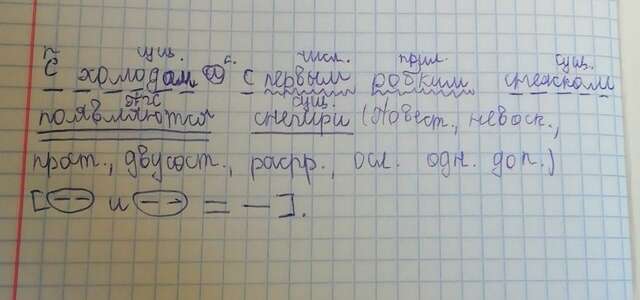 сущ. с. числ. прил. сущ.
С холодам и с первым робким снежком
сущ.
появляются снегири (Повест., невоск.,
прост., двусост., распр., осл. одн. доп.)
[(--) и (--) = —].